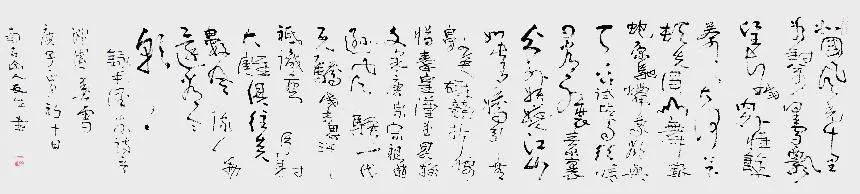 北國風光千里
冰封萬里雪飄
望長城內外惟餘
莽莽大河上
頓失滔滔山舞銀
蛇原馳蠟象欲與
天公試比高須晴
日看紅裝素裹
分外妖嬈江山
如此多嬌引
英雄競折腰
惜秦皇漢武略輸
文采唐宗宋祖稍
遜風騷一代
天驕成吉思汗
祗識彎弓射
大雕俱往矣
數風流人物
還看今
朝
錄毛澤東詩詞
沁園春雪
庚子初十日
山人